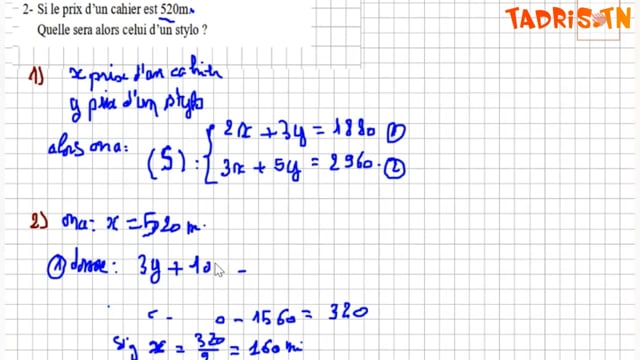 2- Si le prix d'un cahier est 520m.
Quelle sera alors celui d'un stylo ?
TADRIS.TN
1) x prix d'un cahier
y prix d'un stylo
alors ona: (S) : { 2x + 3y = 1880 ①
3x + 5y = 2960. ②
2) ona: x = 520 m.
① donne: 3y + 10
- 1560 = 320
sig x = 320/2 = 160 mi